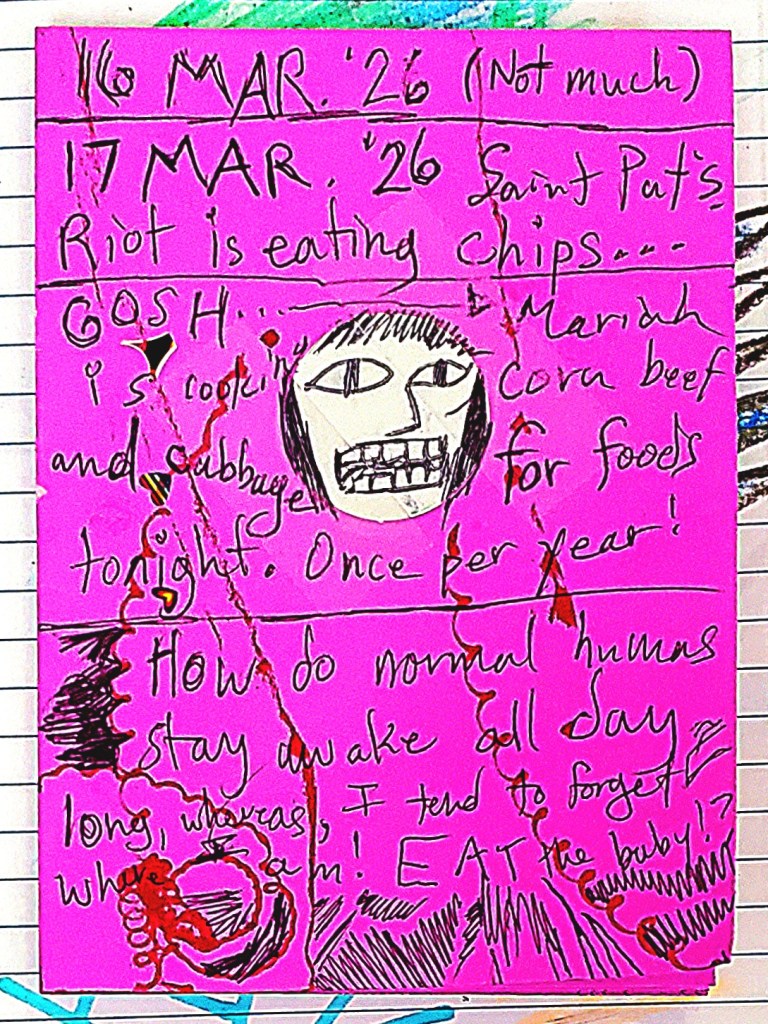 16 MAR. '26 (Not much)
17 MAR. '26 Saint Pat's
Riot is eating chips...
GOSH... Mariah
is cooking corn beef
and cabbage for foods
tonight. Once per year!
How do normal humans
stay awake all day
long, whereas, I tend to forget
where I am! EAT the baby!?